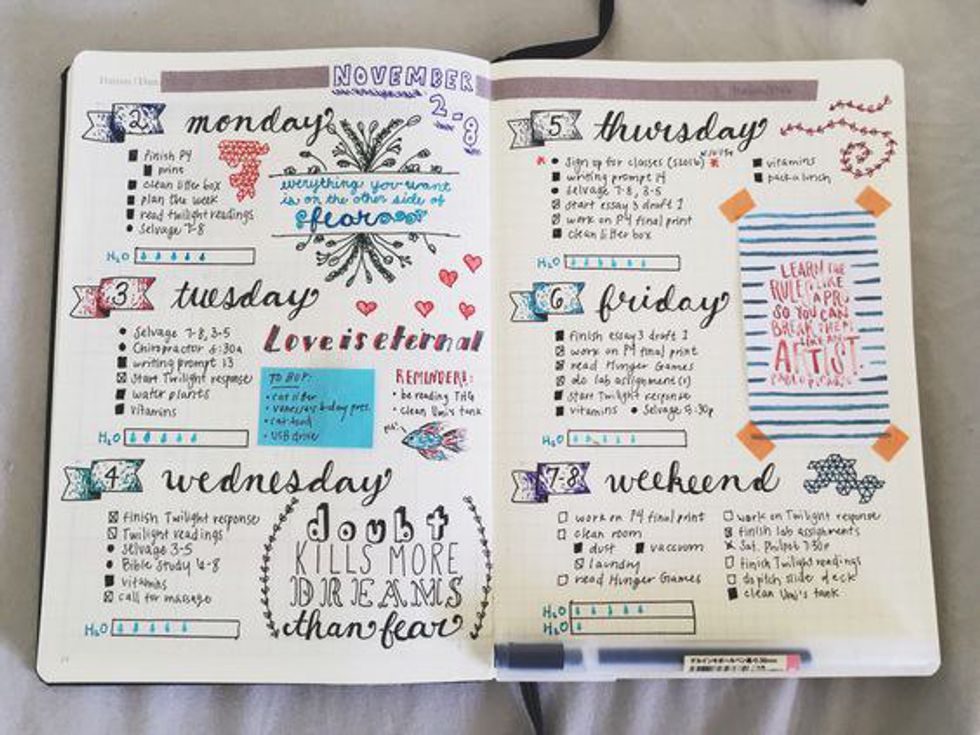 NOVEMBER
2-8
2 monday
finish P4
print
clean litter box
plan the week
read twilight readings
Selvage 7-8
H2O
everything you want
is on the other side of
fear
3 tuesday
Selvage 7-8, 3-5
Chiropractor 8:30a
writing prompt 13
Start Twilight response
water plants
vitamins
H2O
Love is eternal
TO BUY:
cat litter
vanessa's b-day pres.
cat food
USB drive
REMINDERS:
be reading THG
clean Umi's tank
4 wednesday
finish Twilight response
Twilight readings
Selvage 3-5
Bible Study 6-8
vitamins
call for massage
H2O
doubt
KILLS MORE
DREAMS
than fear
5 thursday
Sign up for classes (S2016)
writing prompt 14
Selvage 7-8, 3-5
start essay 3 draft 1
work on P4 final print
clean litter box
vitamins
pack a lunch
H2O
6 friday
finish essay 3 draft 1
work on P4 final print
read Hunger Games
do lab assignment(s)
start Twilight response
vitamins Selvage 8:30p
H2O
LEARN THE
RULES LIKE
A PRO
SO YOU CAN
BREAK THEM
LIKE AN
ARTIST.
PABLO PICASSO
7-8 weekend
work on P4 final print
clean room
dust vaccuum
laundry
read Hunger Games
work on Twilight response
finish lab assignments
Sat. Philpot 7:30p
finish Twilight readings
do pitch slide deck
clean Umi's tank
H2O
H2O